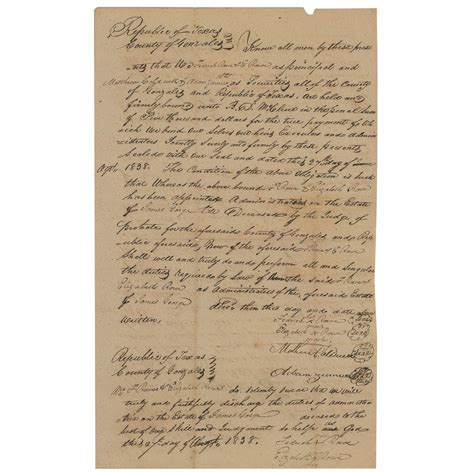 Republic of Texas
County of Gonzales Know all men by these pres
ents that We Rowe as principal and
Matthew Caldwell & Adam as Securities all of the County
of Gonzales and Republic of Texas. are held and
firmly bound unto B. D. McClure in the penal Sum
of Five Thousand dollars for the true payment of Wh
ich We bind our Selves our heirs Executors and admin
istrators Jointly Severly and firmly by these presents
Sealed with our Seal and dated this 27 day of
1838. The Condition of the above obligation is such
that Whereas the above bound Rowe & Elizabeth Rowe
has been appointed Administrators on the Estate
of James George Deceased by the Judge of
probate for the aforesaid County of Gonzales and Rep
ublic aforesaid. Now if the aforesaid Rowe & E Rowe
Shall well and truly do and perform all and Singular
the duties required by Law of the said Rowe
Elizabeth Rowe as Administrators of the aforesaid Estate
of James George from this day and date above
Written.
Rowe
mark
Elizabeth Rowe
mark
Mathew Caldwell
Adam
Republic of Texas
County of Gonzales
We Rowe & Elizabeth Rowe do Solemnly Swear that we will
truly and faithfully discharge the duties of administra
tors on the Estate of James George deceased to the
best of our Skill and Judgment So help us God
this 27 day of 1838.
Rowe
Elizabeth Rowe